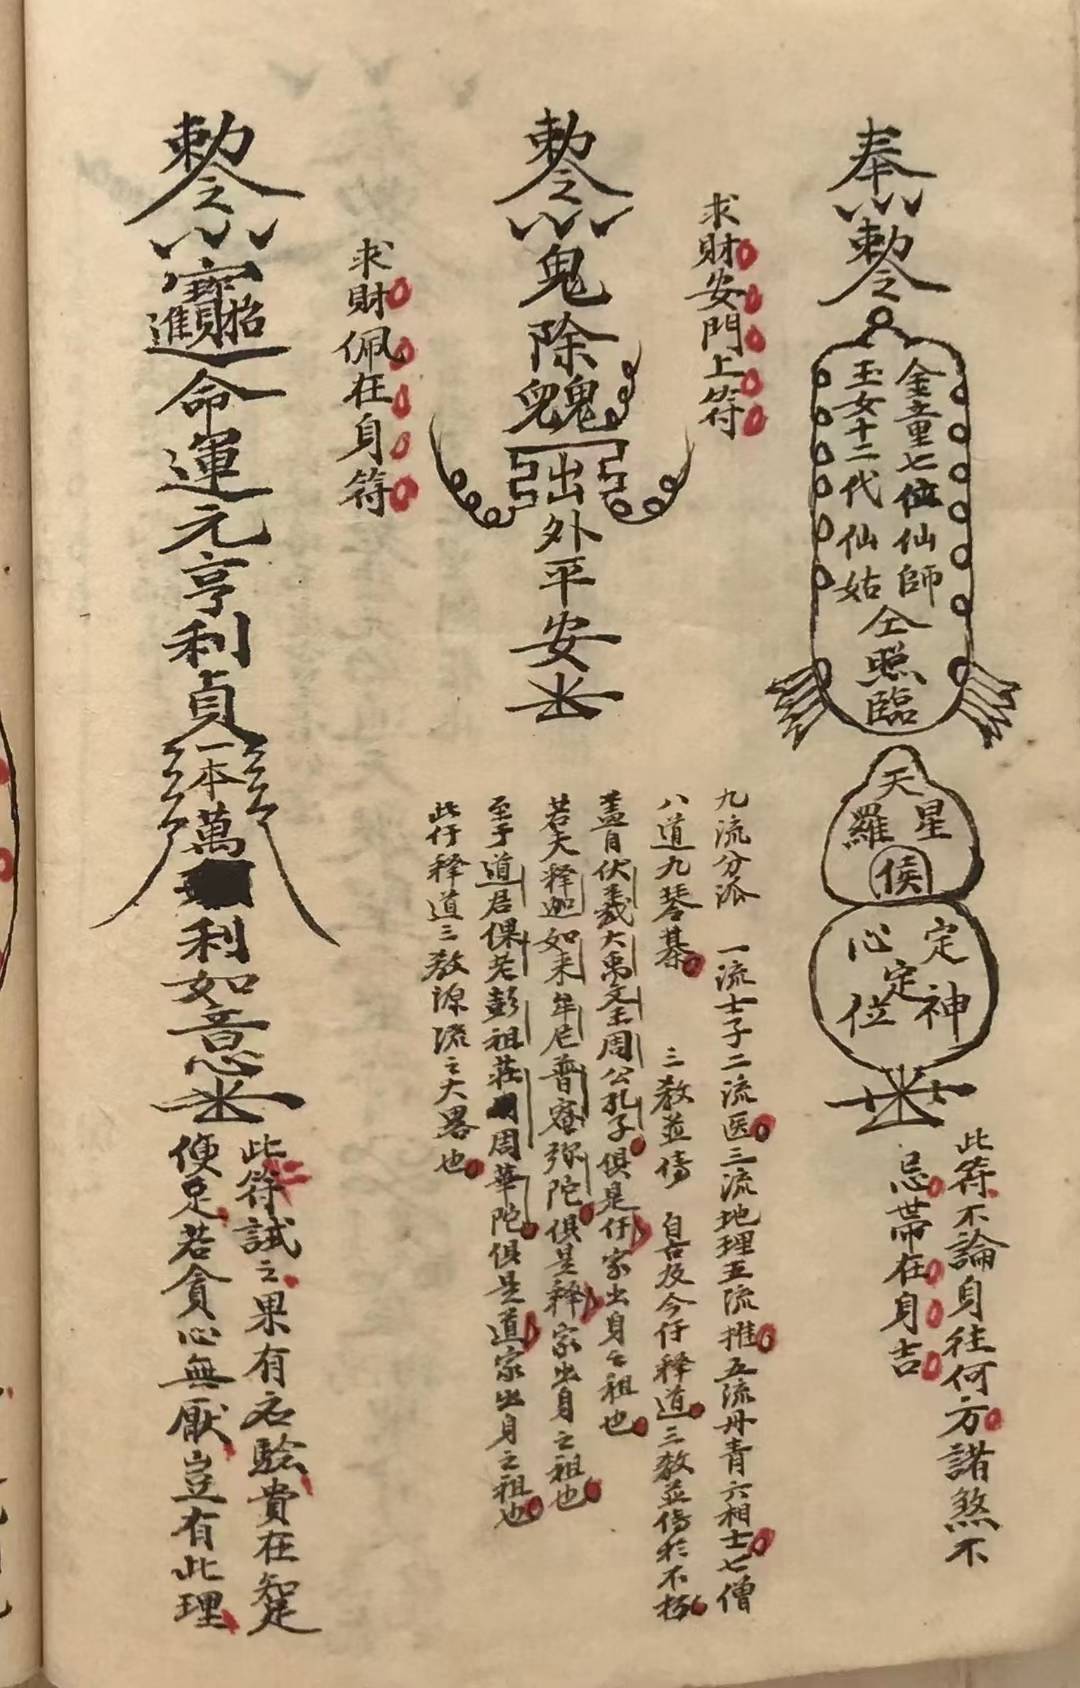 奉
勅令
金童七位仙師
玉女十二代仙姑
仝照臨
天
星
羅
侯
定神
定
心位
此符不論身往何方諸煞不
忌帶在身吉
求財安門上符
勅令
鬼
除
魏
出
外
平
安
九流分派 一流士子二流医三流地理五流推五流丹青六相士七僧
八道九琴棊 三教並傳 自古及今仔释道三教並傳於不朽
盖自伏羲大禹文王周公孔子俱是仔家出身之祖也
若夫释迦如来牟尼普庵弥陀俱是释家出身之祖也
至于道君保老彭祖莊周華陀俱是道家出身之祖也
此仔释道三教源流之大畧也
求財佩在身符
勅令
招寶進
命
運
元
亨
利
貞
一本萬利如意
此符試之果有応驗貴在知足
便足若貪心無厭豈有此理